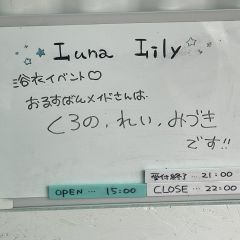 Luna Lily
浴衣イベント♡
おるすばんメイドさんは
くろの、れい、みづき
です!!
受付終了 … 21:00
OPEN … 15:00
CLOSE … 22:00